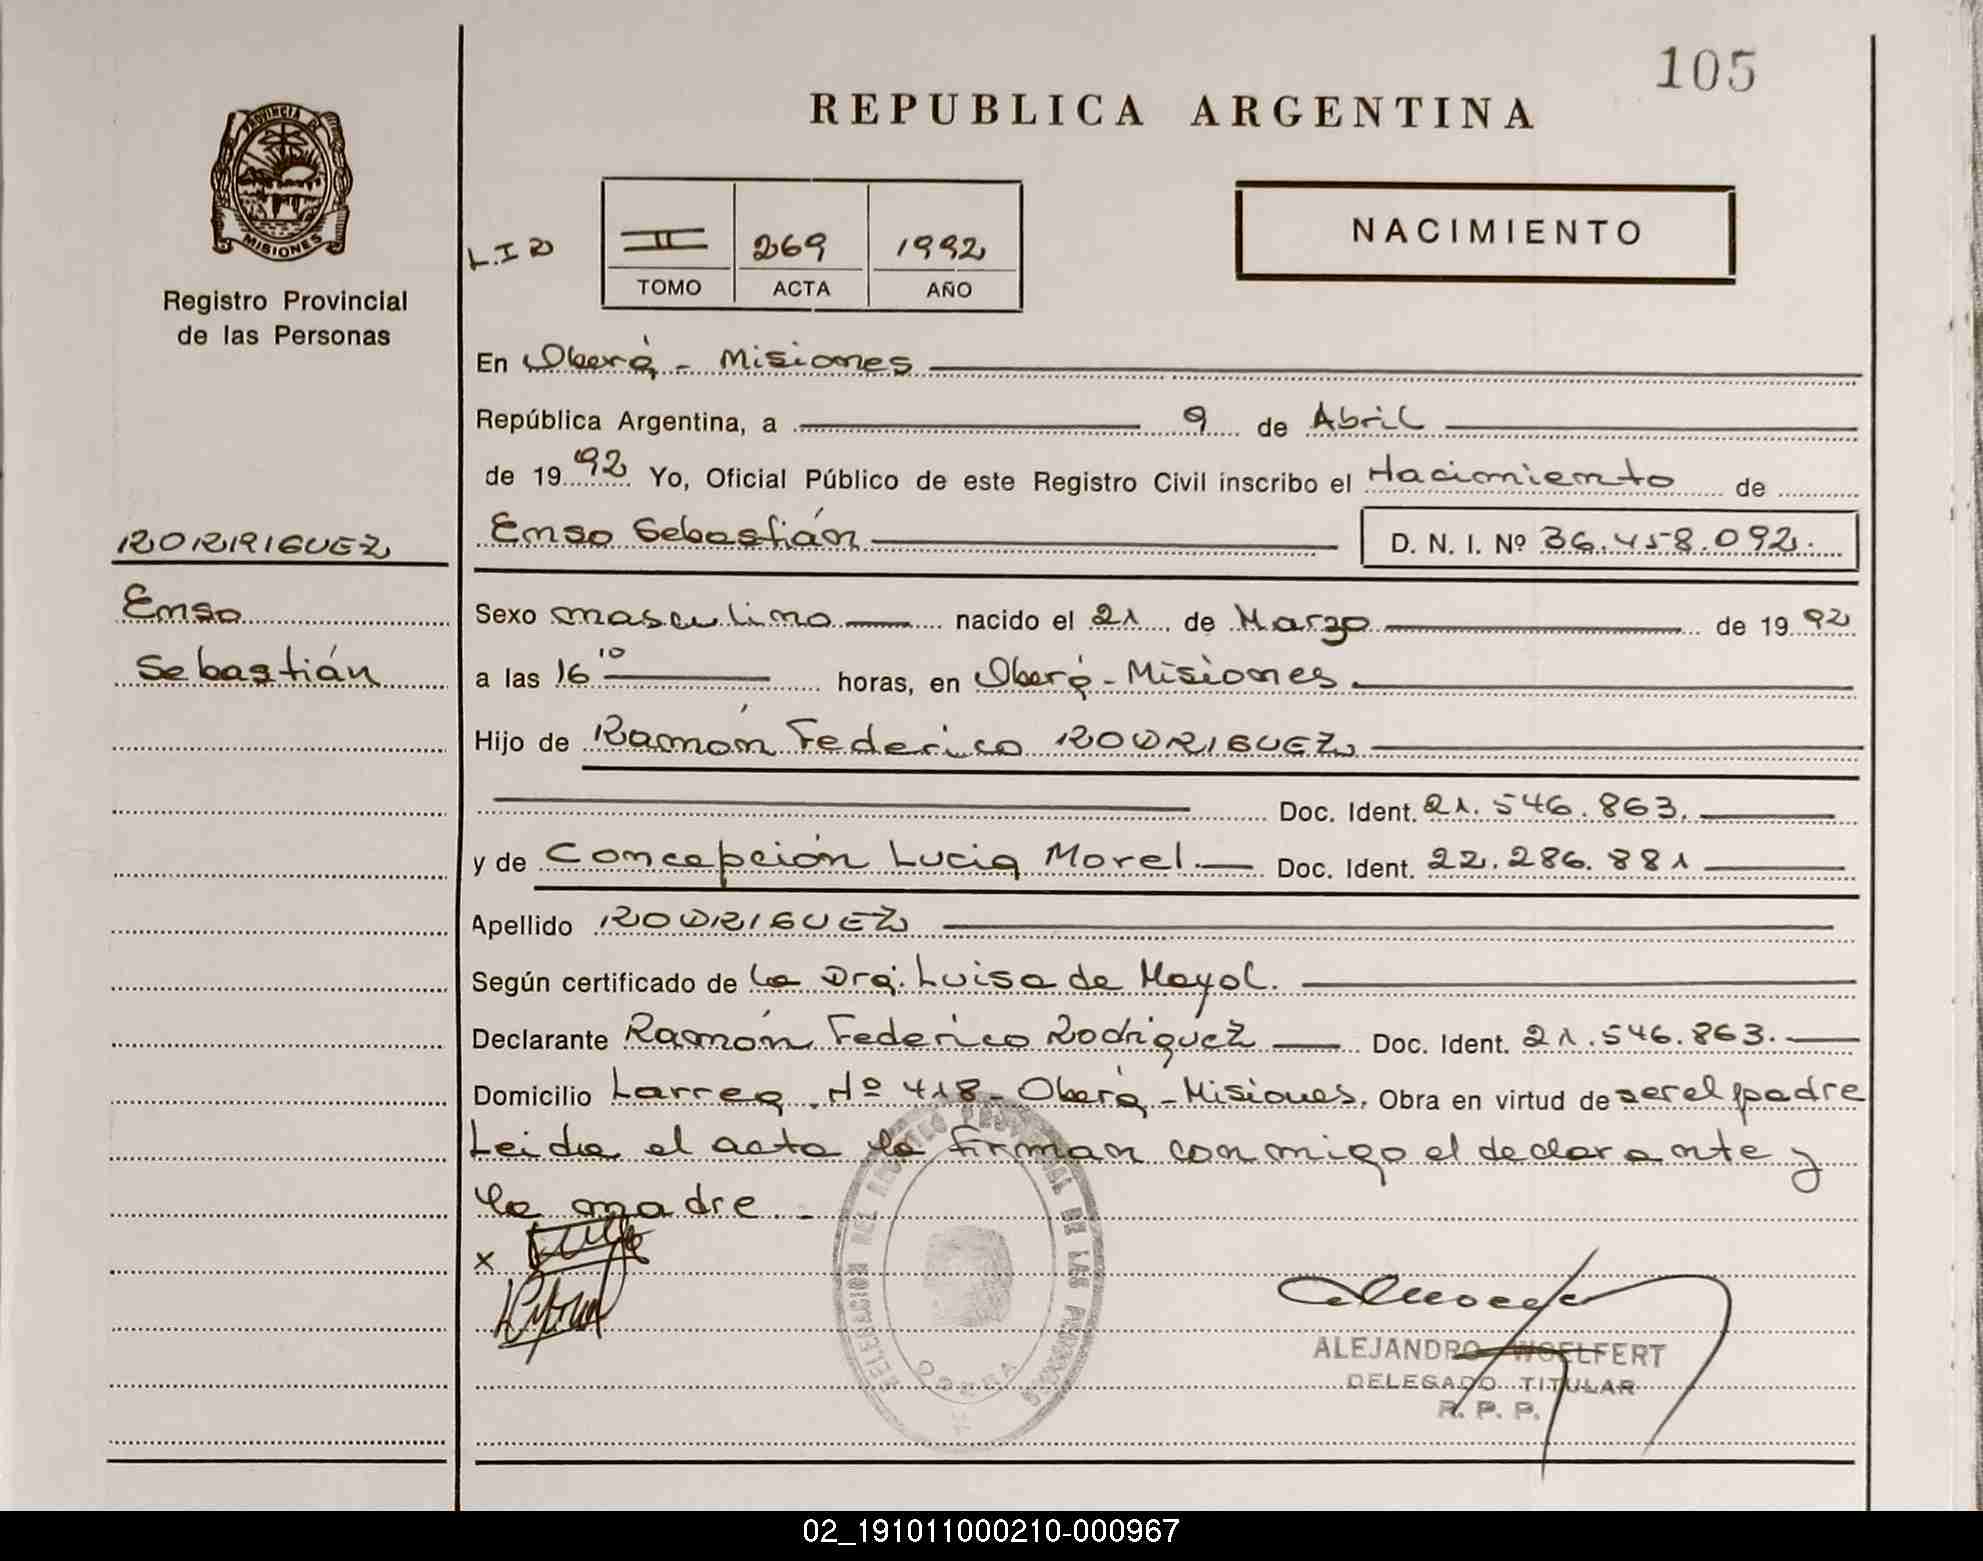 105
REPUBLICA ARGENTINA
PROVINCIA DE
MISIONES
Registro Provincial
de las Personas
II 269 1992
TOMO ACTA AÑO
NACIMIENTO
En Oberá - Misiones
República Argentina, a 9 de Abril
de 19 92 Yo, Oficial Público de este Registro Civil inscribo el Nacimiento de
Enso Sebastián D. N. I. Nº 36.458.092.
RODRIGUEZ
Enso
Sebastián
Sexo masculino nacido el 21 de Marzo de 19 92
a las 16 10 horas, en Oberá - Misiones
Hijo de Ramón Federico RODRIGUEZ
Doc. Ident. 21.546.863.
y de Concepción Lucia Morel. Doc. Ident. 22.286.881
Apellido RODRIGUEZ
Según certificado de la Dra. Luisa de Mayol.
Declarante Ramón Federico Rodriguez Doc. Ident. 21.546.863.
Domicilio Larrea Nº 418 - Oberá - Misiones. Obra en virtud de ser el padre
Leida el acta la firman conmigo el declarante y
la madre.-
x
DELEGACION DEL REGISTRO PROVINCIAL DE LAS PERSONAS
OBERA
ALEJANDRO WOELFERT
DELEGADO TITULAR
R. P. P.
02_191011000210-000967